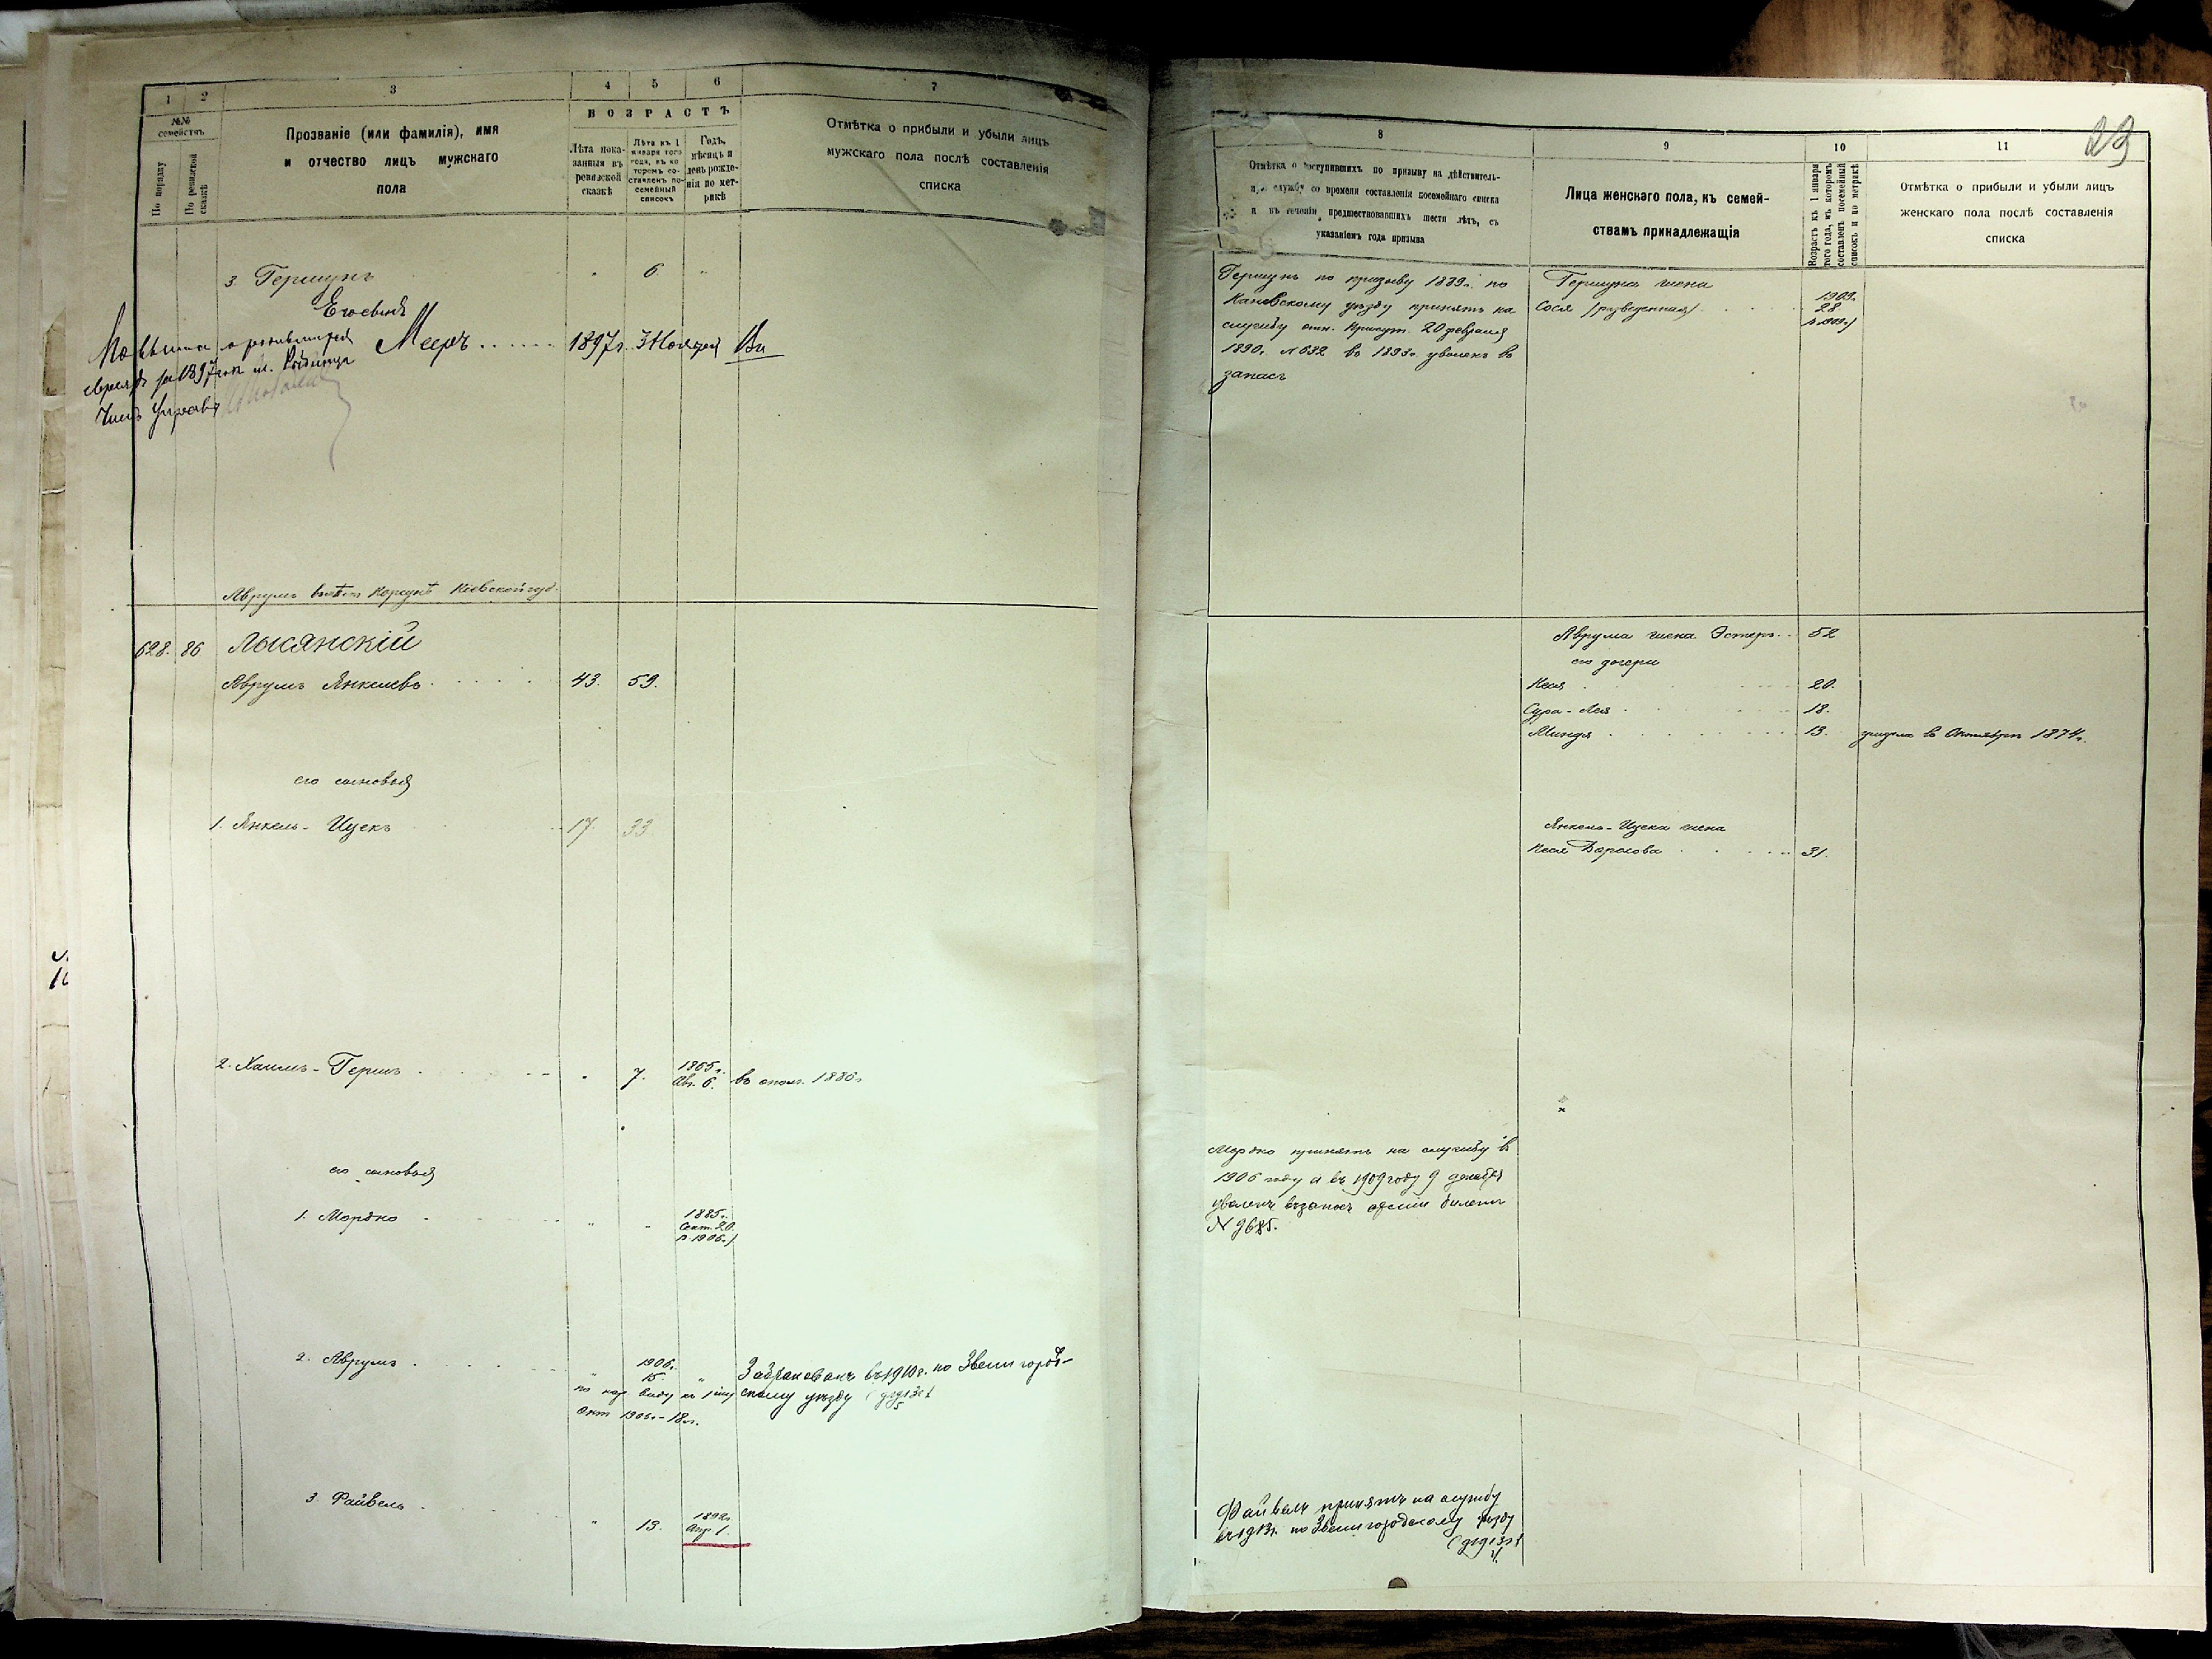 1
2
3
4
5
6
7
№№
семействъ
По порядку
По ревизской
сказкѣ
Прозваніе (или фамилія), имя
и отчество лицъ мужскаго
пола
ВОЗРАСТЪ
Лѣта пока-
занныя въ
ревизской
сказкѣ
Лѣта къ 1
января того
года, въ ко-
торомъ со-
ставленъ по-
семейный
списокъ
Годъ,
мѣсяцъ и
день рожде-
нія по мет-
рикѣ
Отмѣтка о прибыли и убыли лицъ
мужскаго пола послѣ составленія
списка
3. Гершунъ 6
Его сынъ
Мееръ 1897г. 3 Ноября
о родившихся
евреяхъ за 1897 годъ м.
Аврумъ Кіевской губ.
628. 86 Лысянскій
Аврумъ Янкелевъ 43. 59.
его сыновья
1. Янкель-Ицекъ 17. 33
2. Хаимъ-Гершъ 7. 1865г.
Авг. 6. въ опол. 1886г.
его сыновья
1. Мордко 1885г.
Сент. 20.
п. 1906г.)
2. Аврумъ 1906г.
15.
по нар. виду къ 1му
Окт 1906г.-18л.
Забракованъ въ 1910г. по Звенигород-
скому уѣзду
3. Файвель 13. 1892г.
Апр. 1.
23
8
9
10
11
Отмѣтка о поступившихъ по призыву на дѣйствитель-
ную службу со времени составленія посемейнаго списка
и въ теченіи предшествовавшихъ шести лѣтъ, съ
указаніемъ года призыва
Лица женскаго пола, къ семей-
ствамъ принадлежащія
Возрастъ къ 1 января
того года, въ которомъ
составленъ посемейный
списокъ и по метрикѣ
Отмѣтка о прибыли и убыли лицъ
женскаго пола послѣ составленія
списка
Гершунъ по призыву 1889г. по
Каневскому уѣзду принятъ на
службу отн. Присут. 20 февраля
1890г. №632 въ 1893г. уволенъ въ
запасъ
Гершуна жена
Сося (разведенная)
1909г.
28
п. 1909г.)
Аврума жена Эстеръ 52
его дочери
Кеся 20.
Сура-Лея 18.
Миндя 13. в Октября 1874г.
Янкель-Ицека жена
Кеся Борохова 31.
Мордко принятъ на службу в
1906 году и въ 1909 году 9 декабря
уволенъ въ запасъ арміи билетъ
№ 9685.
Файвель принятъ на службу
въ 1913г. по Звенигородскому уѣзду